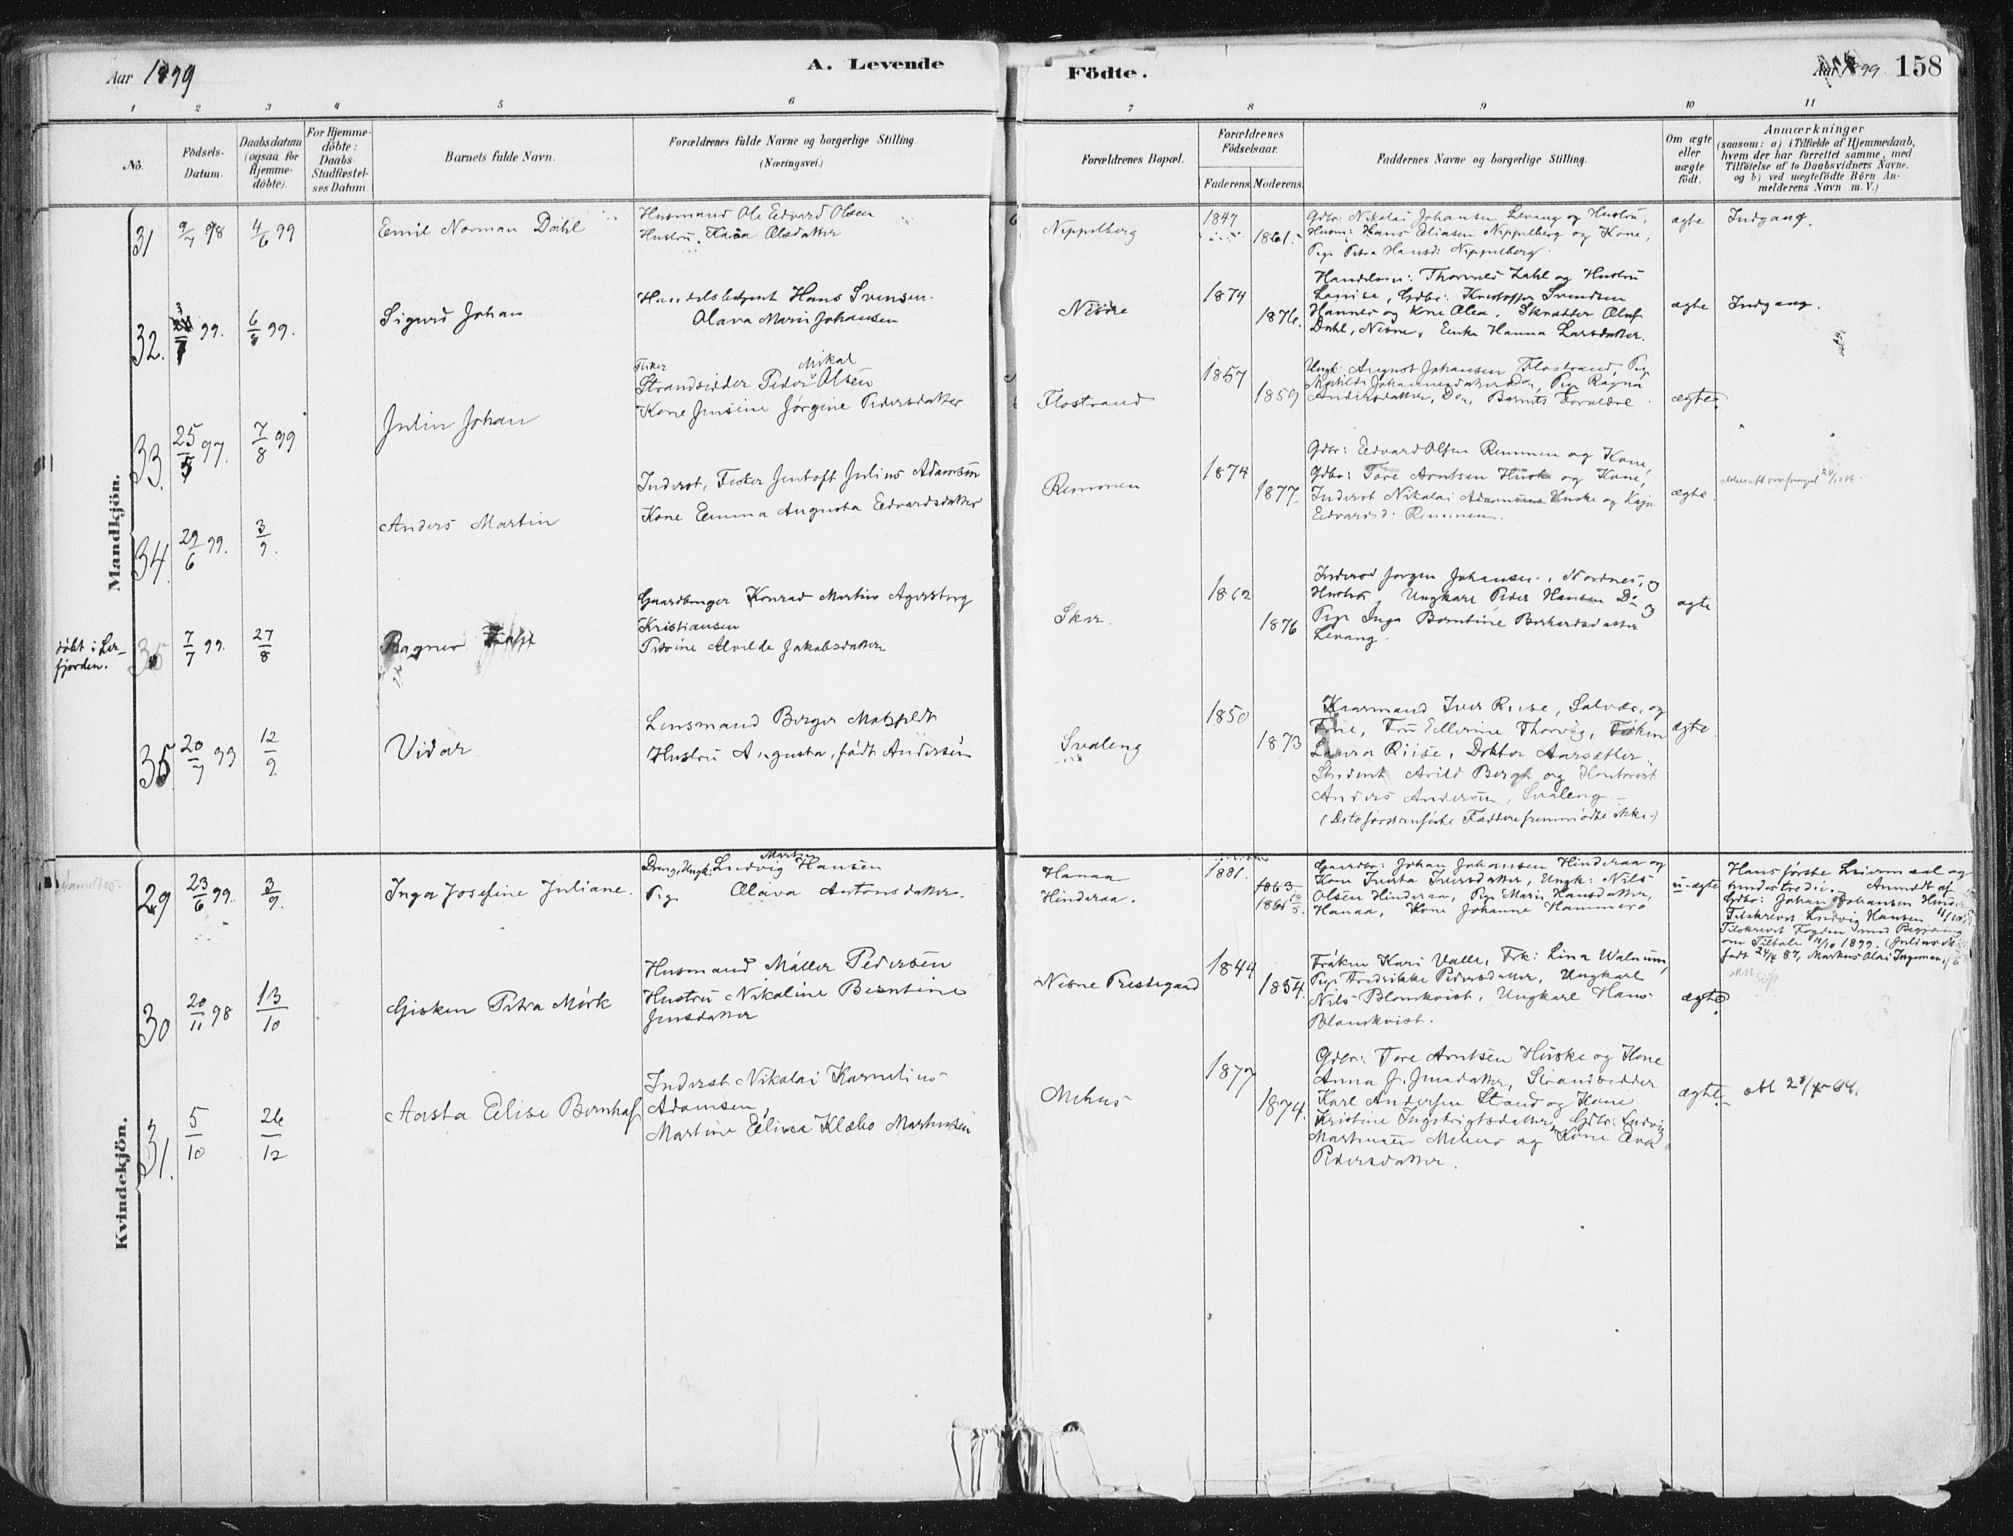 Aar 1899
A. Levende
Födte.
Aar 1899
158
1 2 3 4 5 6 7 8 9 10 11
No.
Födsels-
Datum.
Daabsdatum
(ogsaa for
Hjemme-
döbte).
For Hjemme-
döbte:
Daabs-
Stadfæstel-
ses Datum
Barnets fulde Navn.
Forældrenes fulde Navne og borgerlige Stilling
(Næringsvei.)
Forældrenes Bopæl.
Forældrenes
Födselsaar.
Faderens. Moderens.
Faddernes Navne og borgerlige Stilling.
Om ægte
eller
uægte
födt.
Anmærkninger
(saasom: a) i Tilfælde af Hjemmedaab,
hvem der har forrettet samme, med
Tilföielse af to Daabsvidners Navne.
og b) ved uægtefödte Börn An-
melderens Navn m. V.)
Mandkjön.
31 9/7 98 4/6 99 Emil Norman Dahl
Husmand Ole Edvard Olsen
Hustru Olsdatter
Nippelberg
1847
1861
Gdbr: Nikolai Johansen Levang og Hustru,
Husm: Hans Eliasen Nippelberg og Kone,
Pige Petra Hansd: Nippelberg.
ægte Indgang.
32. 99. 99. Sigurd Johan
Handelsbetjent Hans Svensen
Olava Marie Johansen
Nesne
1874
1876.
Handelsm: Thorvald Zahl og Hustru
Louise, Gdbr: Kristoffer Svendsen
Hannes og Kone Olea, Skrædder Oluf
Dahl, Nesne, Enke Hanna Larsdatter.
ægte Indgang.
33. 25/5 97. 7/8 99 Julin Johan
Fisker Mikal
Strandsidder Peder Olsen
Kone Jensine Jörgine Pedersdatter
Flostrand
1857
1859
Ungk: August Johansen Flostrand, Pige
Matilde Johannesdatter Do, Pige Ragna
Andersdatter, Do, Barnets Forældre
ægte.
34. 29/6 99. 3/9. Anders Martin
Inderst, Fisker Jentoft Julius Adamsen
Kone Emma Augusta Edvardsdatter
Remmen
1874
1877
Gdbr: Edvard Olsen Remmen og Kone,
Gdbr: Tore Arntsen Huske og Kone,
Inderst Nikolai Adamsen Huske og Kaja
Edvardsd: Remmen.
ægte.
döbt i Ler-
fjorden.
35 7/7 99. 27/8 Ragner
Gaardbruger Konrad Martin Agersborg
Kristiansen
Petrine Alvilde Jakobsdatter
Skar.
1862
1876
Inderst Jörgen Johansen, Nordnes, og
Hustru, Ungkarl Peder Hansen Do og
Pige Inga Berntine Berhardsdatter
Levang.
ægte
36 20/7 99 12/9 Vidar
Lensmand Berger Matzfeldt
Hustru Augusta, födt Andersen
Svaleng
1850
1873
Kaarmand Iver Riise, Salvær, og
Frue, Fru Ellerine Thorvig, Fröken
Laura Riise, Doktor Aarsether
Student Arild Bergh og Kontorist
Anders Andersen, Svaleng
(De to förstanförte Faddere fremmödte ikke.)
ægte.
Kvindekjön.
29 23/6 99. 3/9. Inga Josefine Juliane.
Martin
Dreng, Ungk: Ludvig Hansen
Pige Olava Antonsdatter.
Hanaa
Hinderaa.
1881.
1863
Gaardbr: Johan Johansen Hinderaa og
Kone Iverta Iversdatter, Ungk: Nils
Olsen Hinderaa, Pige Marie Hansdatter,
Hanaa, Kone Johanne Hammerö
uægte
Hans förste Leiermaal og
hendes tredie. Anmeldt af
Gdbr: Johan Johansen Hinderaa
Tilskrevet Ludvig Hansen 11/10
Tilskrevet Fogden med Begjæring
om Tiltale 11/10 1899.
30 20/11 98 13/10 Gisken Petra Mörk
Husmand Möller Pedersen
Hustru Nikoline Berntine
Jensdatter
Nesne Prestegaard
1844
1854.
Fröken Kari Valle, Frk: Lina Walnum,
Pige Fredrikke Pedersdatter, Ungkarl
Nils Blomkvist, Ungkarl Hans
Blomkvist.
ægte.
31. 5/10 26/12 Aasta Elise Bernhof
Inderst Nikolai Kornelius
Adamsen,
Martine Elisa Klæbo Martinsen
Mehus
1877
1874.
Gdbr: Tore Arntsen Huske og Kone
Anna J. Jensdatter, Strandsidder
Karl Andersen Strand og Kone
Kristine Ingebrigtsdatter, Gdbr: Ludvig
Martinsen Mehus og Kone Ane
Pedersdatter.
ægte.